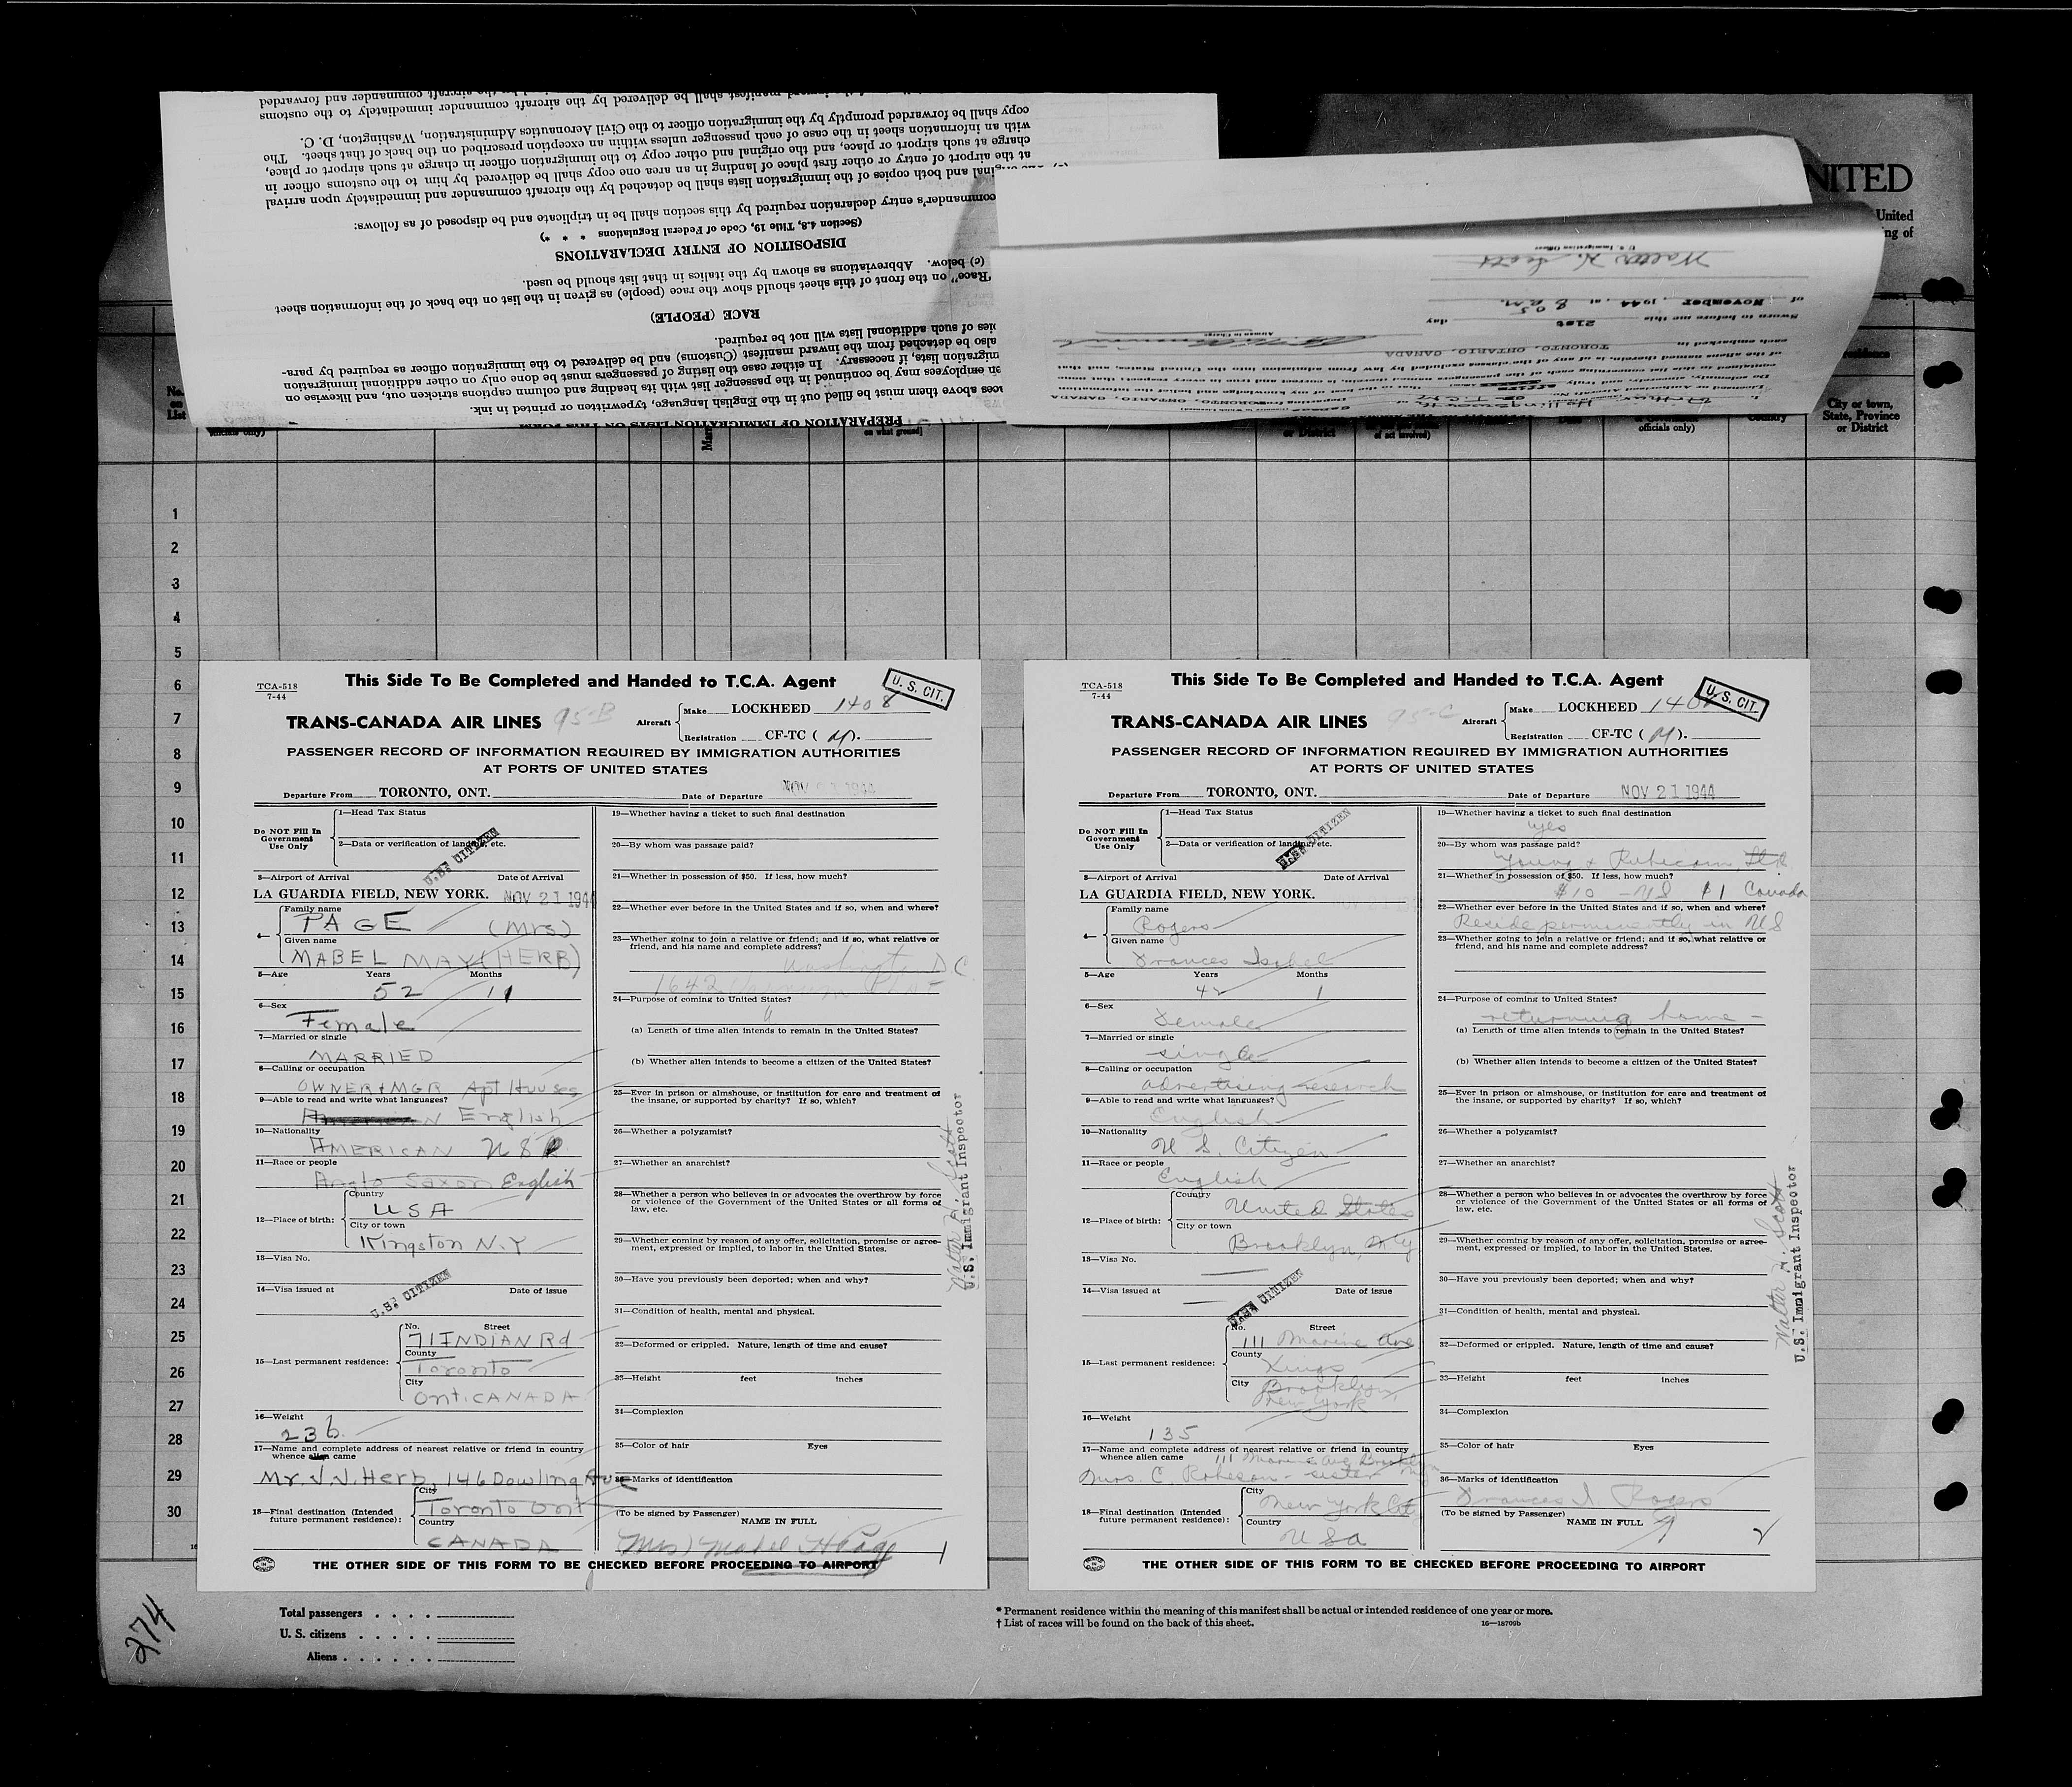 copy shall be forwarded promptly by the immigration officer to the Civil Aeronautics Administration, Washington, D. C.
with an information sheet in the case of each passenger unless within an exception prescribed on the back of that sheet. The
charge at such airport or place, and the original and other copy to the immigration officer in charge at such airport or place,
at the airport of entry or other first place of landing in an area one copy shall be delivered by him to the customs officer in
and both copies of the immigration lists shall be detached by the aircraft commander and immediately upon arrival
commander's entry declaration required by this section shall be in triplicate and be disposed of as follows:
(Section 4.8, Title 19, Code of Federal Regulations * * *)
DISPOSITION OF ENTRY DECLARATIONS
(c) below. Abbreviations as shown by the italics in that list should be used.
"Race" on the front of this sheet should show the race (people) as given in the list on the back of the information sheet
RACE (PEOPLE)
ies of such additional lists will not be required.
also be detached from the inward manifest (Customs) and be delivered to the immigration officer as required by para-
migration lists, if necessary. In either case the listing of passengers must be done only on other additional immigration
an employees may be continued in the passenger list with its heading and column captions stricken out, and likewise on
ces above them must be filled out in the English language, typewritten or printed in ink.
PREPARATION OF IMMIGRATION LISTS ON THIS FORM
NITED
United
ng of
U. S. Immigration Officer
Walter H. Scott
of November, 1944, at 8 05 a.m.
Sworn to before me this 21st day
TORONTO, ONTARIO, CANADA
No. on List
City or town, State, Province or District
officials only)
Country
or District
1
2
3
4
5
6
7
8
9
10
11
12
13
14
15
16
17
18
19
20
21
22
23
24
25
26
27
28
29
30
TCA-518
7-44
This Side To Be Completed and Handed to T.C.A. Agent
U. S. CIT.
TRANS-CANADA AIR LINES 95-B
Aircraft
Make LOCKHEED 1408
Registration CF-TC ( M ).
PASSENGER RECORD OF INFORMATION REQUIRED BY IMMIGRATION AUTHORITIES
AT PORTS OF UNITED STATES
Departure From TORONTO, ONT. Date of Departure NOV 21 1944
Do NOT Fill In Government Use Only
1—Head Tax Status
2—Data or verification of landing, etc.
U.S. CITIZEN
3—Airport of Arrival Date of Arrival
LA GUARDIA FIELD, NEW YORK. NOV 21 1944
4—
Family name
PAGE (Mrs)
Given name
MABEL MAY (HERB)
5—Age Years Months
52 11
6—Sex
Female
7—Married or single
MARRIED
8—Calling or occupation
OWNER & MGR Apt Houses
9—Able to read and write what languages?
English
10—Nationality
AMERICAN
11—Race or people
Anglo Saxon English
12—Place of birth:
Country
USA
City or town
Kingston N.Y
13—Visa No.
14—Visa issued at Date of issue
U.S. CITIZEN
15—Last permanent residence:
No. Street
71 INDIAN Rd
County
Toronto
City
Ont. CANADA
16—Weight
236
17—Name and complete address of nearest relative or friend in country whence alien came
Mr. J. N. Herb, 146 Dowling Ave
18—Final destination (Intended future permanent residence):
City
Toronto Ont
Country
CANADA
19—Whether having a ticket to such final destination
20—By whom was passage paid?
21—Whether in possession of $50. If less, how much?
22—Whether ever before in the United States and if so, when and where?
23—Whether going to join a relative or friend; and if so, what relative or friend, and his name and complete address?
Washington D C
1642
24—Purpose of coming to United States?
(a) Length of time alien intends to remain in the United States?
(b) Whether alien intends to become a citizen of the United States?
25—Ever in prison or almshouse, or institution for care and treatment of the insane, or supported by charity? If so, which?
26—Whether a polygamist?
27—Whether an anarchist?
28—Whether a person who believes in or advocates the overthrow by force or violence of the Government of the United States or all forms of law, etc.
29—Whether coming by reason of any offer, solicitation, promise or agreement, expressed or implied, to labor in the United States.
30—Have you previously been deported; when and why?
31—Condition of health, mental and physical.
32—Deformed or crippled. Nature, length of time and cause?
33—Height feet inches
34—Complexion
35—Color of hair Eyes
36—Marks of identification
(To be signed by Passenger)
NAME IN FULL
(Mrs) Mabel H Page 1
Walter H. Scott
U.S. Immigrant Inspector
THE OTHER SIDE OF THIS FORM TO BE CHECKED BEFORE PROCEEDING TO AIRPORT
TCA-518
7-44
This Side To Be Completed and Handed to T.C.A. Agent
U. S. CIT.
TRANS-CANADA AIR LINES 95-C
Aircraft
Make LOCKHEED 1408
Registration CF-TC ( M ).
PASSENGER RECORD OF INFORMATION REQUIRED BY IMMIGRATION AUTHORITIES
AT PORTS OF UNITED STATES
Departure From TORONTO, ONT. Date of Departure NOV 21 1944
Do NOT Fill In Government Use Only
1—Head Tax Status
2—Data or verification of landing, etc.
U.S. CITIZEN
3—Airport of Arrival Date of Arrival
LA GUARDIA FIELD, NEW YORK.
4—
Family name
Rogers
Given name
Frances Isabel
5—Age Years Months
42 1
6—Sex
Female
7—Married or single
single
8—Calling or occupation
advertising research
9—Able to read and write what languages?
English
10—Nationality
U. S. Citizen
11—Race or people
English
12—Place of birth:
Country
United States
City or town
Brooklyn, N Y
13—Visa No.
14—Visa issued at Date of issue
U.S. CITIZEN
15—Last permanent residence:
No. Street
111 Marine Ave
County
Kings
City
Brooklyn
New York
16—Weight
135
17—Name and complete address of nearest relative or friend in country whence alien came
111 Marine Ave Brooklyn
Mrs. C. Robeson - sister
18—Final destination (Intended future permanent residence):
City
New York City
Country
USA
19—Whether having a ticket to such final destination
yes
20—By whom was passage paid?
Young & Rubicam, Ltd.
21—Whether in possession of $50. If less, how much?
$10 - US $1 Canada
22—Whether ever before in the United States and if so, when and where?
Reside permanently in US
23—Whether going to join a relative or friend; and if so, what relative or friend, and his name and complete address?
24—Purpose of coming to United States?
returning home -
(a) Length of time alien intends to remain in the United States?
(b) Whether alien intends to become a citizen of the United States?
25—Ever in prison or almshouse, or institution for care and treatment of the insane, or supported by charity? If so, which?
26—Whether a polygamist?
27—Whether an anarchist?
28—Whether a person who believes in or advocates the overthrow by force or violence of the Government of the United States or all forms of law, etc.
29—Whether coming by reason of any offer, solicitation, promise or agreement, expressed or implied, to labor in the United States.
30—Have you previously been deported; when and why?
31—Condition of health, mental and physical.
32—Deformed or crippled. Nature, length of time and cause?
33—Height feet inches
34—Complexion
35—Color of hair Eyes
36—Marks of identification
Frances I Rogers
(To be signed by Passenger)
NAME IN FULL
2
Walter H. Scott
U.S. Immigrant Inspector
THE OTHER SIDE OF THIS FORM TO BE CHECKED BEFORE PROCEEDING TO AIRPORT
274
Total passengers
U. S. citizens
Aliens
* Permanent residence within the meaning of this manifest shall be actual or intended residence of one year or more.
† List of races will be found on the back of this sheet.
16—18709b